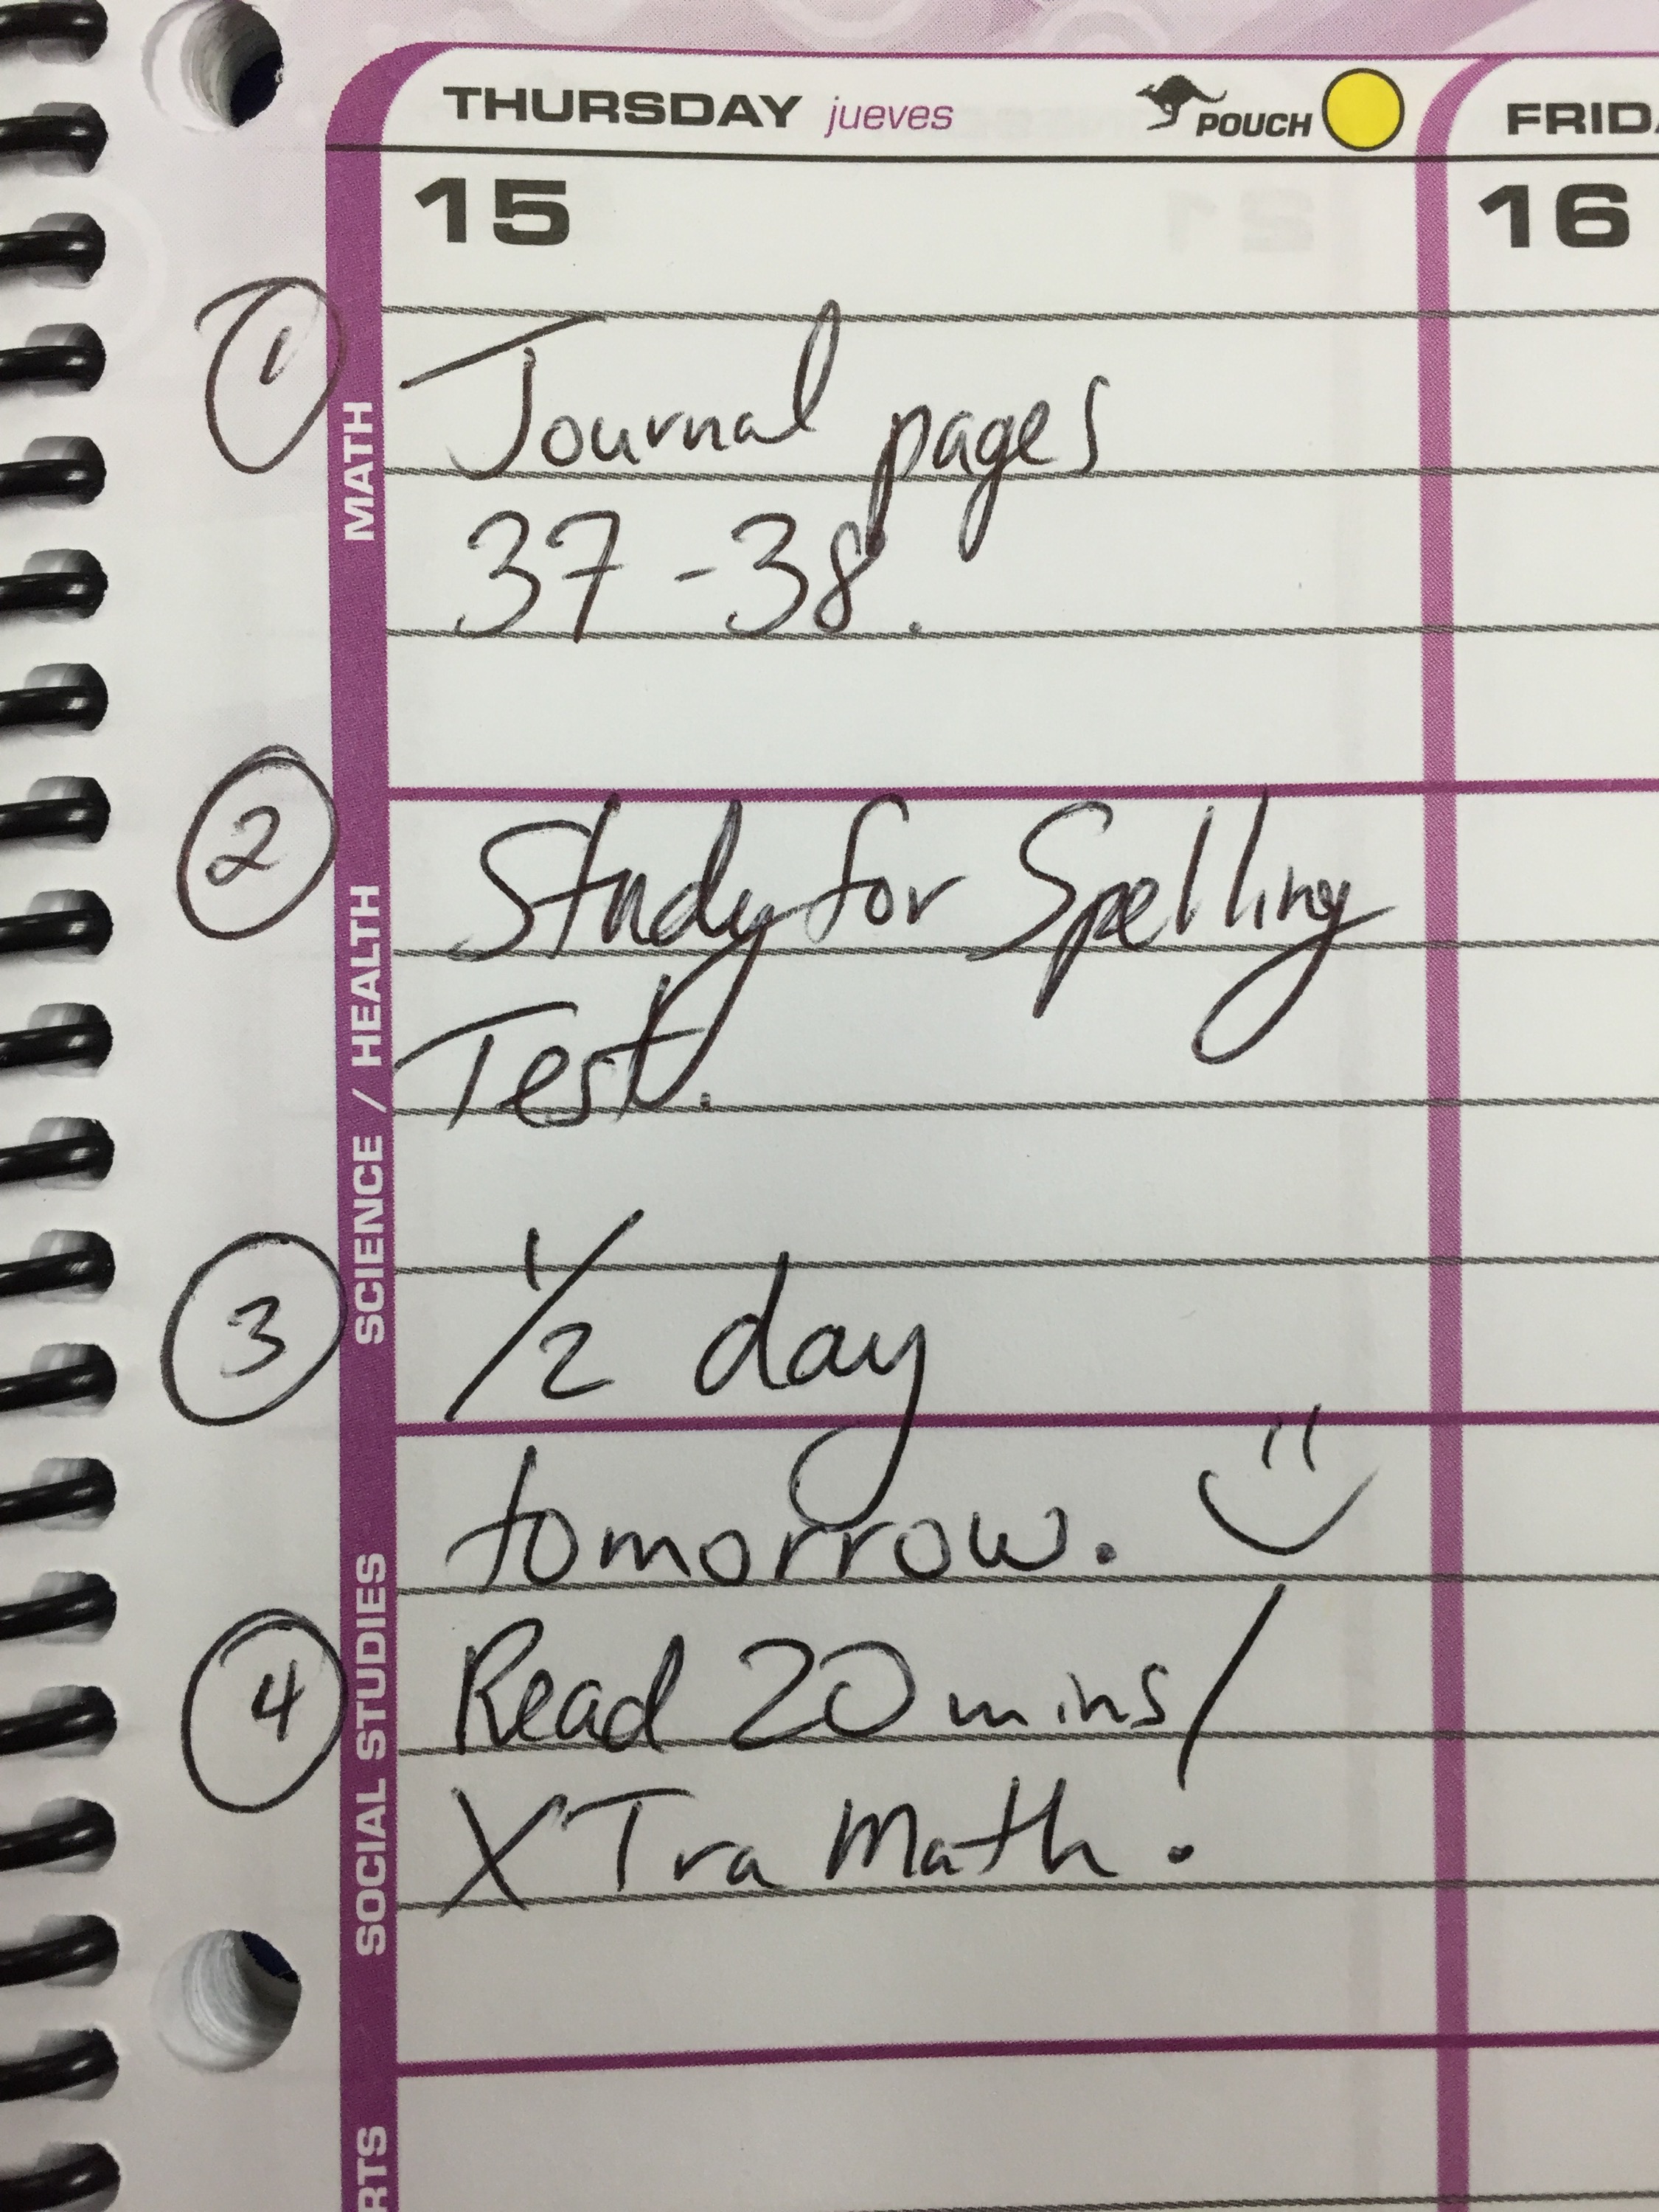 THURSDAY jueves POUCH FRIDA
15 16
1 Journal pages
37-38.
MATH
2 Study for Spelling
Test.
SCIENCE / HEALTH
3 1/2 day
tomorrow.
4 Read 20 mins/
XTra Math.
SOCIAL STUDIES
RTS